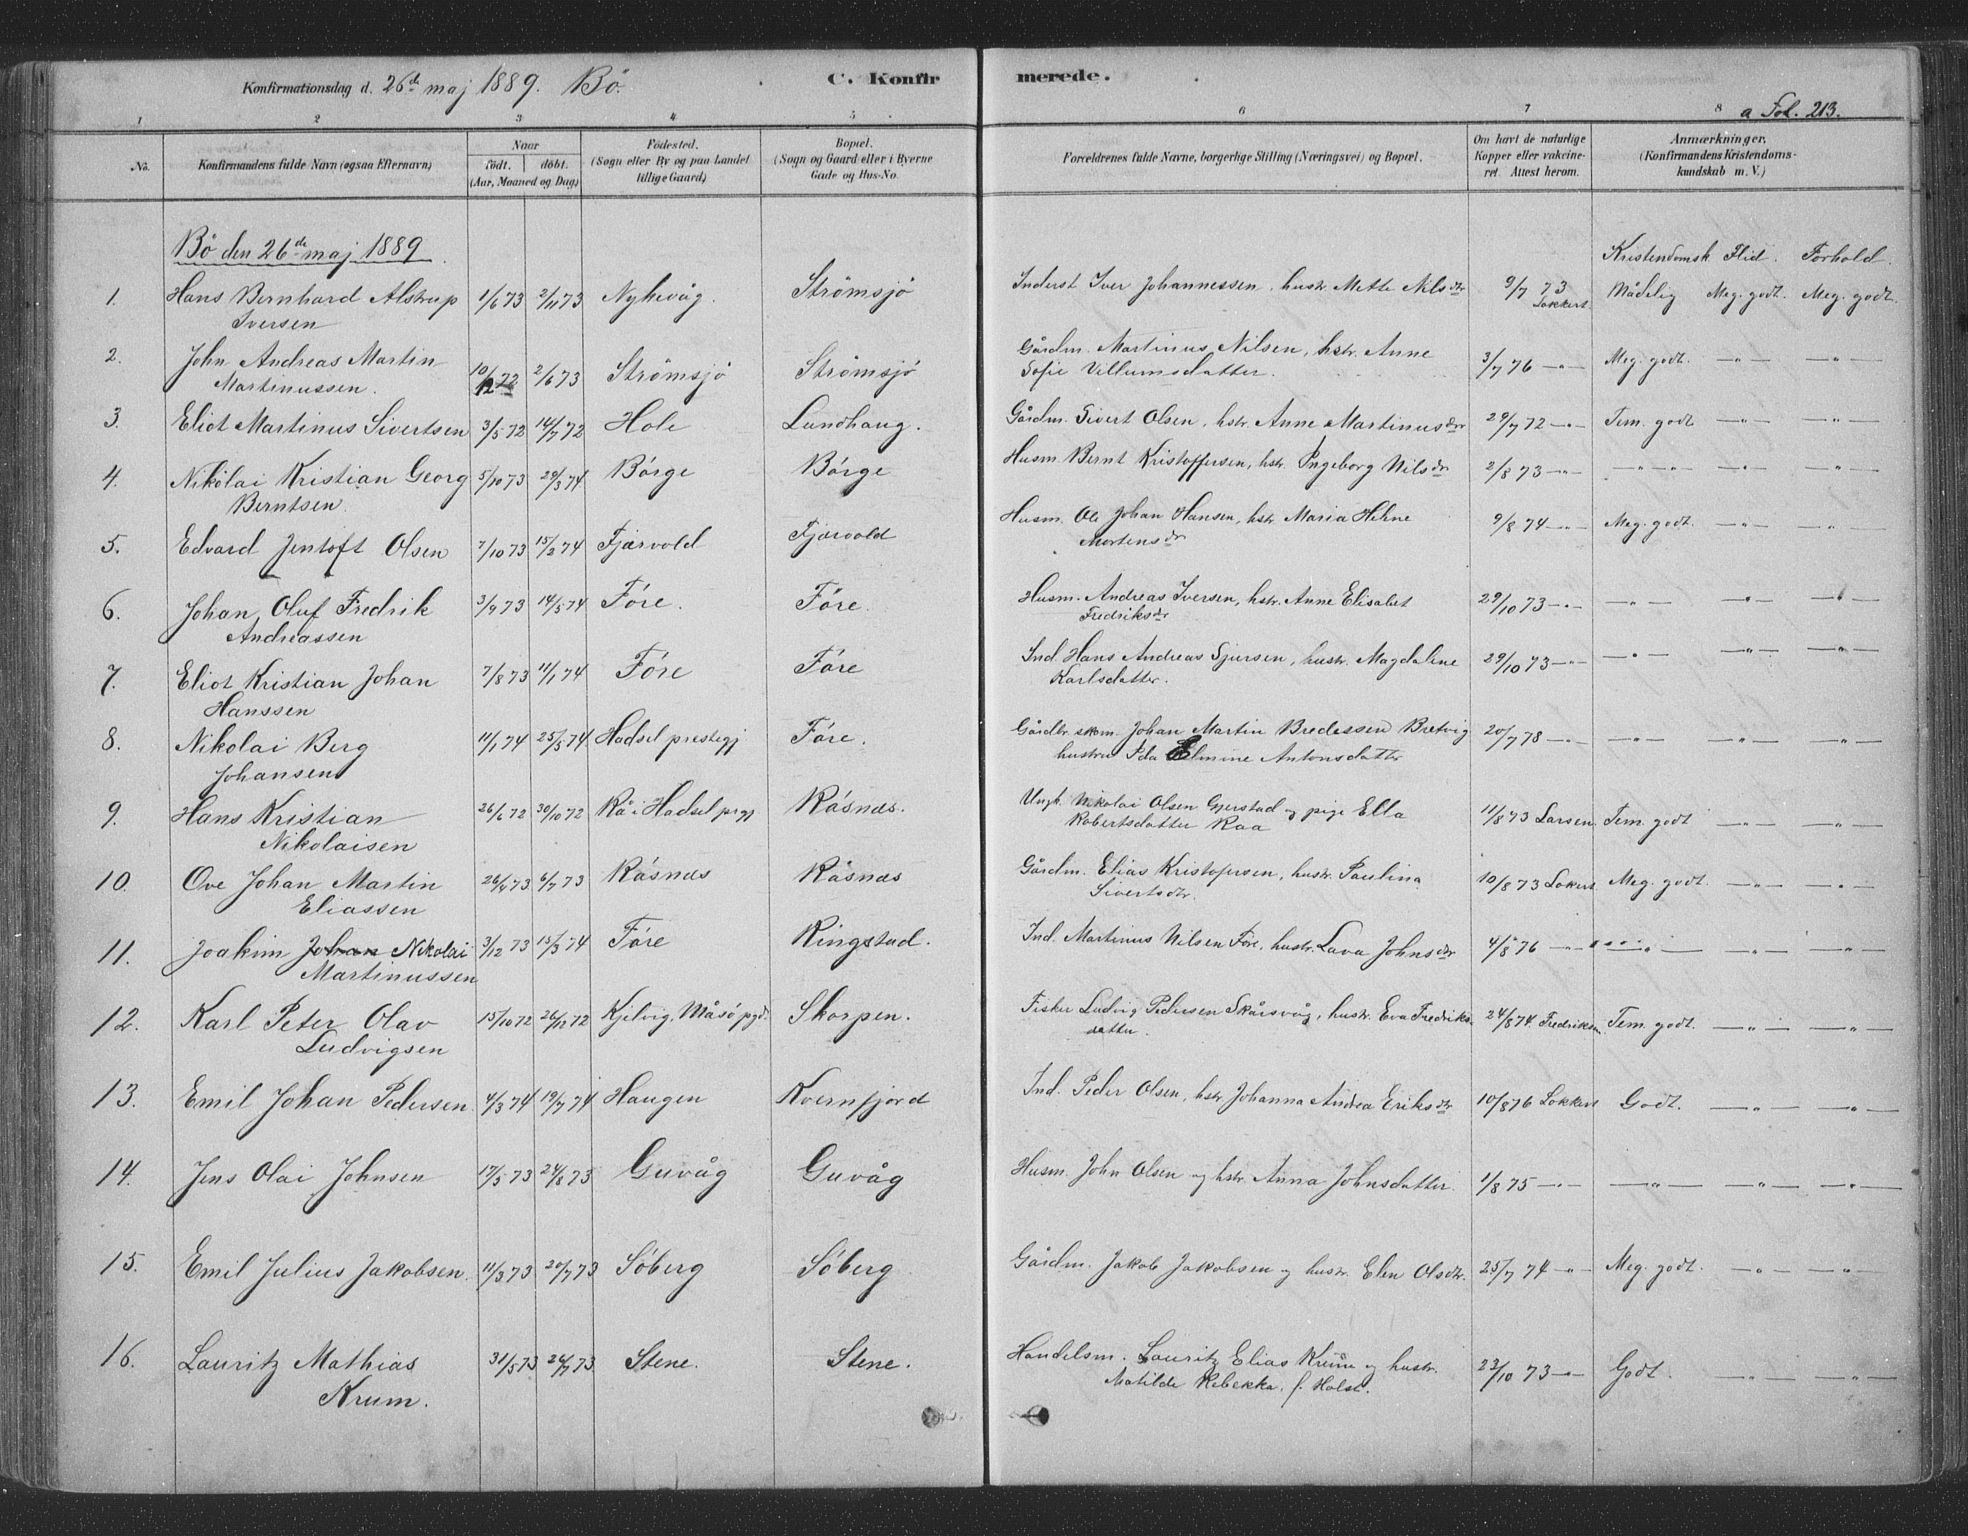 Konfirmationsdag d. 26de maj 1889. Bö. C. Konfirmerede.
a Fol. 213.
1 2 3 4 5 6 7 8
No. Konfirmandens fulde Navn (ogsaa Efternavn) Naar födt. döbt. (Aar, Maaned og Dag) Födested. (Sogn eller By og paa Landet tillige Gaard) Bopæl. (Sogn og Gaard eller i Byerne Gade og Hus-No. Forældrenes fulde Navne, borgerlige Stilling (Næringsvei) og Bopæl. Om havt de naturlige Kopper eller vakcineret. Attest herom. Anmærkninger, (Konfirmandens Kristendomskundskab m. V.)
Bö den 26de maj 1889. Kristendomsk Flid. Forhold.
1. Hans Bernhard Alstrup 1/6 73 2/11 73 Nykvåg. Strömsjö Inderst Iver Johannessen, hustr. Mette Nilsdtr 9/7 73 Lokkert Mådelig Meg. godt. Meg. godt.
Iversen
2. John Andreas Martin 10/12 72 2/6 73 Strömsjö Strömsjö Gårdm. Martinus Nilsen, hstr. Anne 3/7 76 —"— Meg. godt. —"— —"—
Martinussen. Sofie Villumsdatter.
3. Eliot Martinus Sivertsen 3/5 72 14/7 72 Hole Lundhaug. Gårdm. Sivert Olsen, hstr. Anne Martinusdtr 29/7 72 —"— Tem. godt —"— —"—
4. Nikolai Kristian Georg 5/10 73 29/3 74 Börge Börge Husm. Bernt Kristoffersen, hstr. Ingeborg Nilsdtr 2/8 73 —"— —"—"— —"— —"—
Berntsen.
5. Edvard Jentoft Olsen 7/10 73 15/2 74 Fjærvold Fjærvold Husm. Ole Johan Hansen, hstr. Maria Helene 9/8 74 —"— Meg. godt. —"— —"—
Mortensdtr
6. Johan Oluf Fredrik 3/9 73 14/5 74 Före. Före. Husm. Andreas Iversen, hstr. Anne Elisabet 29/10 73 —"— —"— —"— —"—
Andreassen Fredriksdtr
7. Eliot Kristian Johan 7/8 73 11/1 74 Före Före Ind. Hans Andreas Sjursen, hustr. Magdaline 29/10 73 —"— —"— —"— —"—
Hanssen Karlsdatter.
8. Nikolai Berg 11/1 74 25/5 74 Hadsel prestegj Före. Gårdbr. skom. Johan Martin Bredessen Bretvig 20/7 78 —"— —"— —"— —"—
Johansen hustru Ida Elmine Antonsdatter
9. Hans Kristian 26/6 72 30/10 72 Rå i Hadsel prgj Råsnæs. Ungk. Nikolai Olsen Gjerstad og pige Ella 11/8 73 Larsen Tem. godt —"— —"—
Nikolaisen Robertsdatter Raa
10. Ove Johan Martin 26/4 73 6/7 73 Råsnæs Råsnæs Gårdm. Elias Kristofersen, hustr. Paulina 10/8 73 Lokert Meg. godt. —"— —"—
Eliassen Sivertsdtr.
11. Joakim Johan Nikolai 3/12 73 15/3 74 Före Ringstad. Ind. Martinus Nilsen Före, hustr. Lava Johnsdtr 4/8 76 —"— —"— —"— —"—
Martinussen
12. Karl Peter Olav 15/10 72 26/12 72 Kjelvig, Måsö pgd. Skorpen. Fisker Ludvig Pedersen Skårsvåg, hustr. Eva Fredriks- 24/8 74 Fredriksen Tem. godt. —"— —"—
Ludvigsen datter.
13. Emil Johan Pedersen 4/3 74 19/7 74 Haugen Kvernfjord Ind. Peder Olsen, hstr. Johanna Andrea Eriksdtr 10/8 76 Lokkert Godt. —"— —"—
14. Jens Olai Johnsen 17/5 73 24/8 73 Guvåg Guvåg Husm. John Olsen og hstr. Anna Johnsdatter. 1/8 75 —"— —"— —"— —"—
15. Emil Julius Jakobsen. 11/3 73 20/7 73 Söberg Söberg Gårdm. Jakob Jakobsen og hustr. Elen Olsdtr. 25/7 74 —"— Meg. godt. —"— —"—
16. Lauritz Mathias 31/5 73 26/7 73 Stene. Stene. Handelsm. Lauritz Elias Krum og hustr. 23/10 73 —"— Godt. —"— —"—
Krum. Matilde Rebekka, f. Holst.